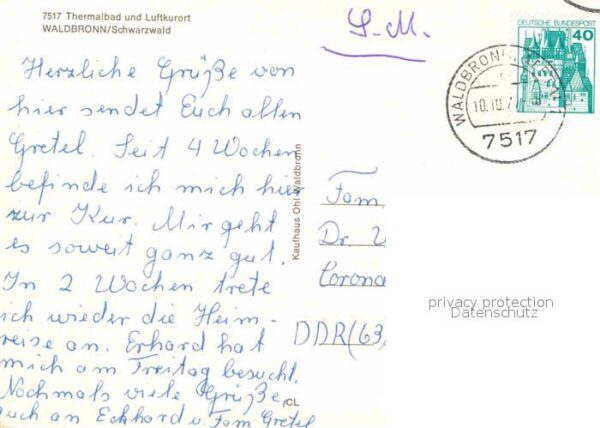 7517 Thermalbad und Luftkurort
WALDBRONN/Schwarzwald
S.-M.
DEUTSCHE BUNDESPOST
40
WALDBRONN
10.10.
7517
Herzliche Grüße von
hier sendet Euch allen
Gretel. Seit 4 Wochen
befinde ich mich hier
zur Kur. Mir geht
es soweit ganz gut.
In 2 Wochen trete
ich wieder die Heim-
reise an. Erhard hat
mich am Freitag besucht.
Nochmals viele Grüße
auch an Eckhard u. Fam Gretel
Kaufhaus Ohl Waldbronn
/CL
Fam.
Dr.
Corona
DDR(63
privacy protection
Datenschutz